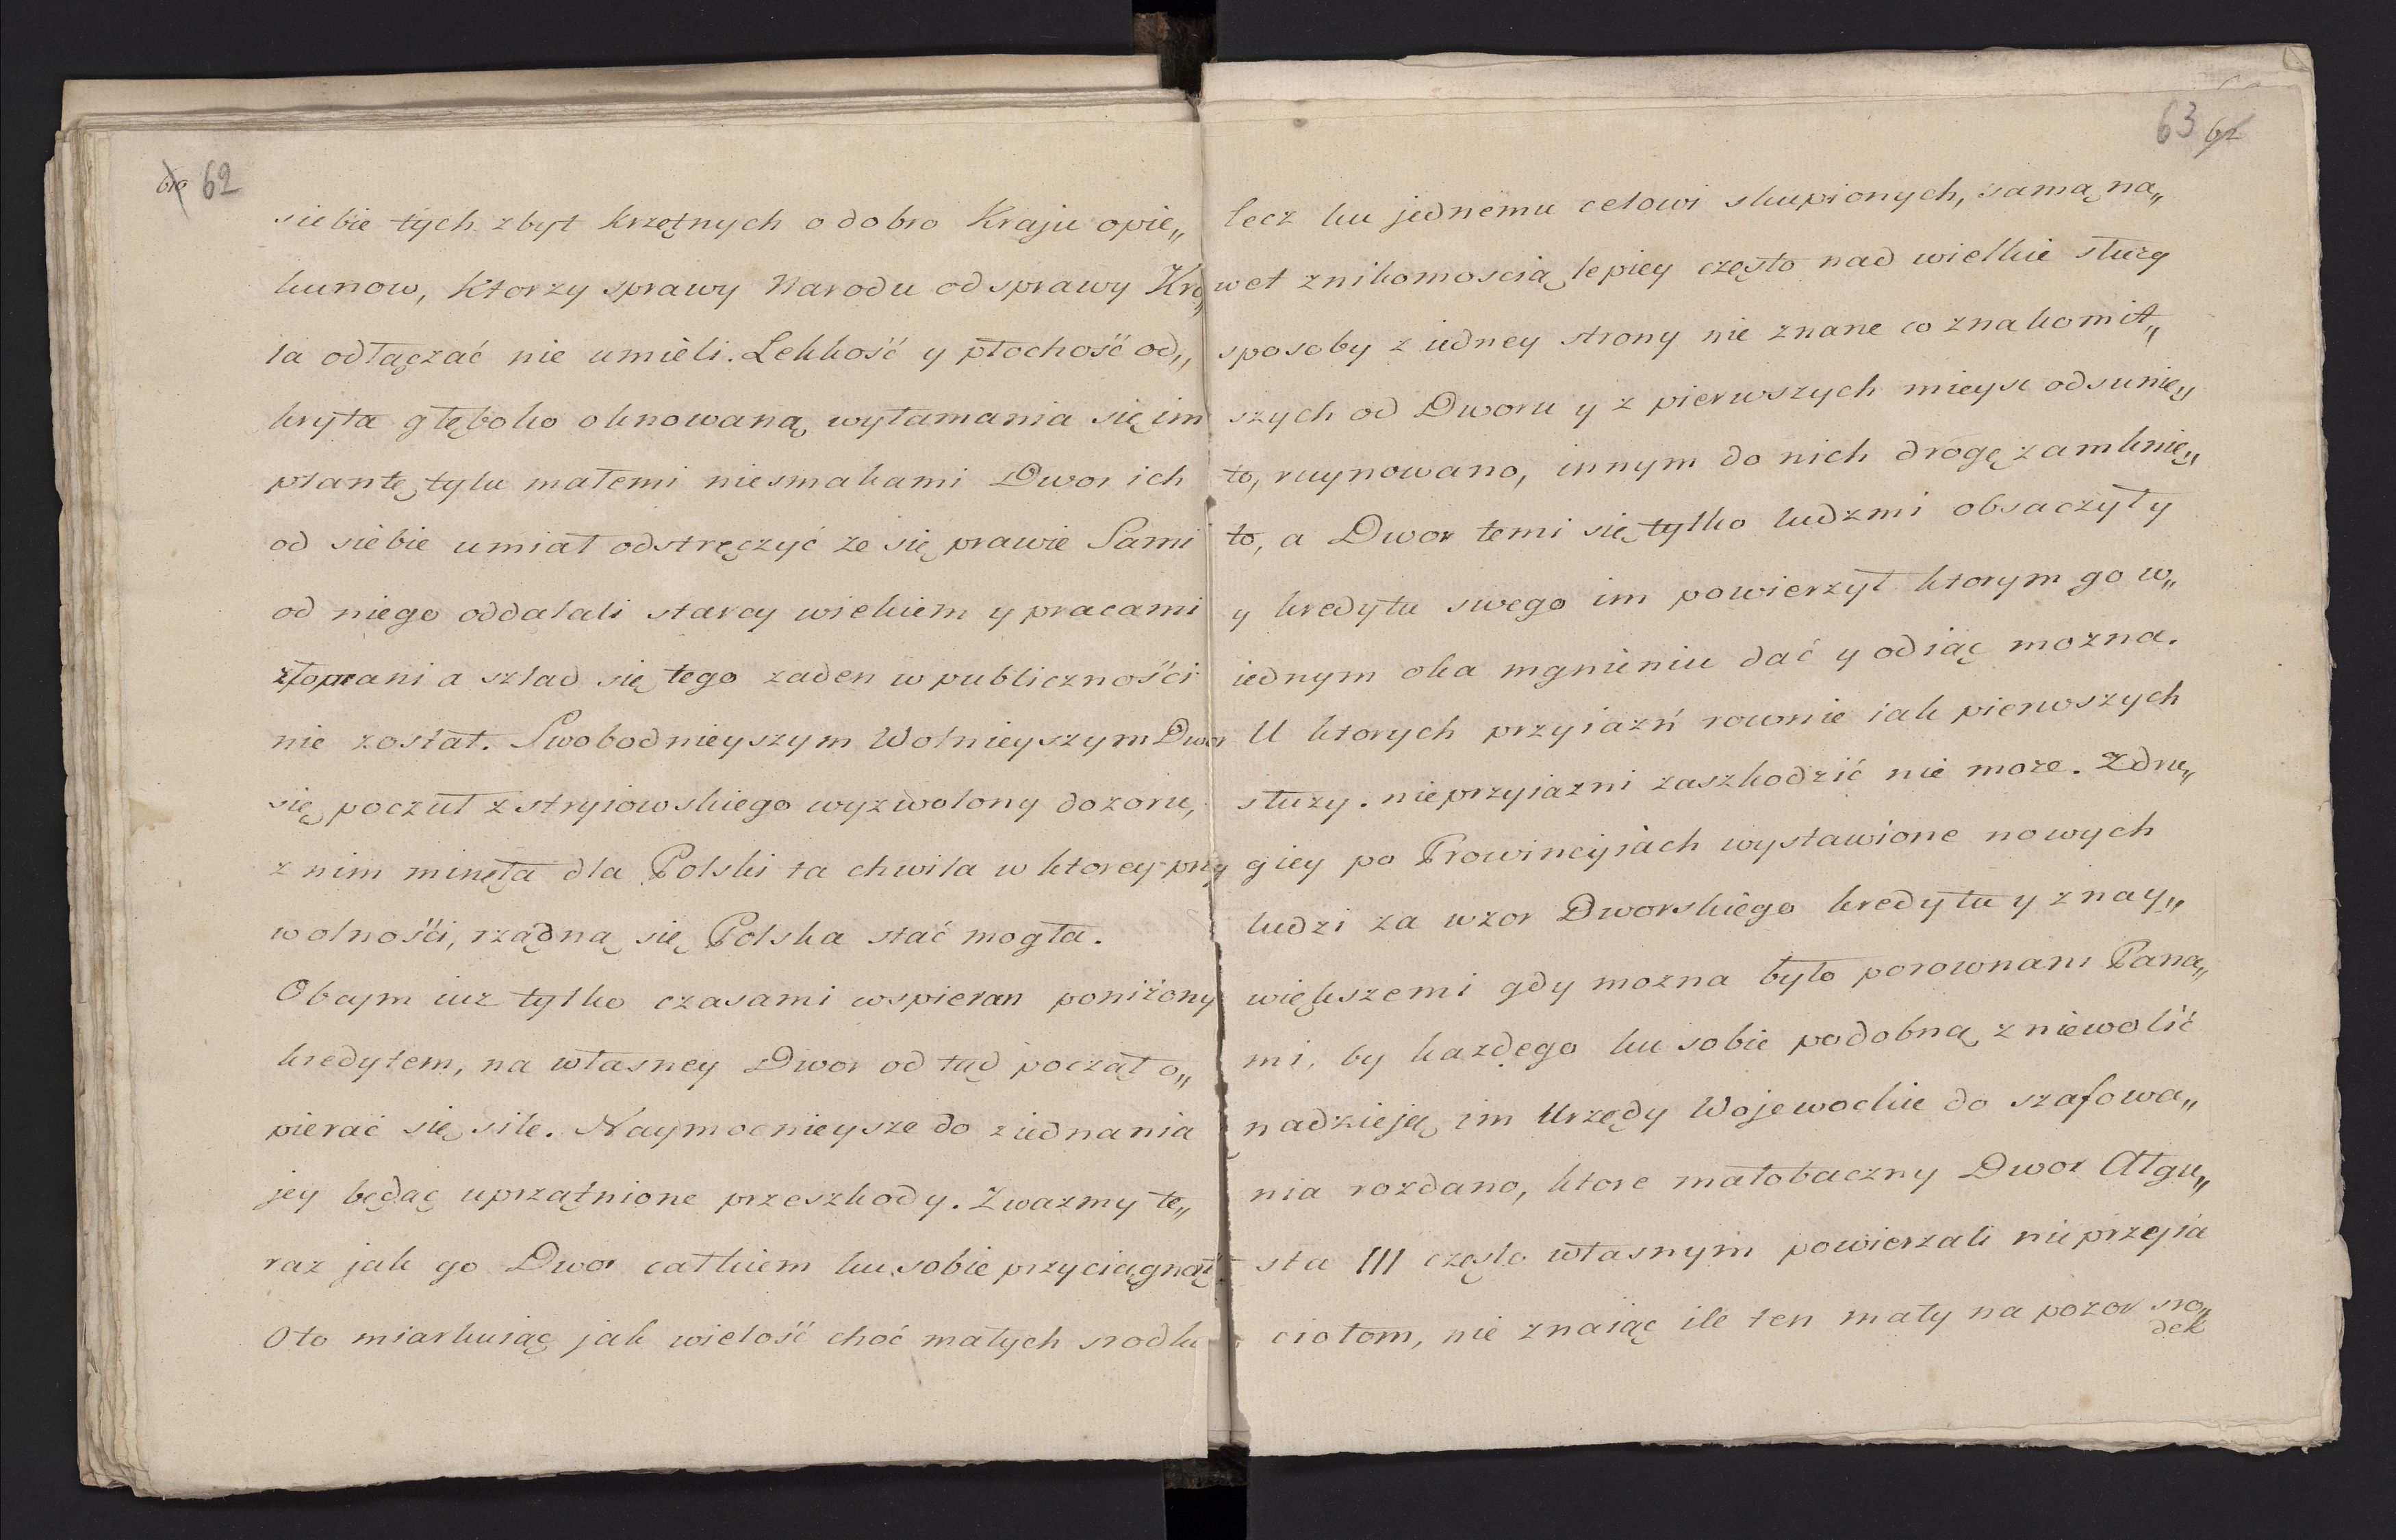 62
siebie tych zbyt krzętnych o dobro Kraju opie„
kunow, Ktorzy sprawy Narodu od sprawy Kro„
la odłączać nie umieli. Lekkość y płochość od„
kryta głęboko oknowaną wyłamania się im
plantę, tylu małemi niesmakami Dwor ich
od siebie umiał odstręczyć ze się prawie Sami
od niego oddalali starcy wiekiem y pracami
a szlad się tego zaden w publicznośći
nie został. Swobodnieyszym Wolnieyszym Dwor
się poczuł z stryiowskiego wyzwolony dozoru,
z nim minęła dla Polski ta chwila w ktorey przy
wolnośći, rządną się Polska stać mogła.
Obcym iuz tylko czasami wspieran poniżony
kredytem, na własney Dwor od tąd począł o„
pierać się sile. Naymocnieysze do ziednania
jey będąc uprzątnione przeszkody. Zwazmy te„
raz jak go Dwor całkiem ku sobie przyciągnął
Oto miarkuiąc jak wielość choć małych srodku
63 62
lecz ku jednemu celowi skupionych, samą na„
wet znikomoscią lepiey często nad wielkie służą
sposoby z iedney strony nie znane co znakomit„
szych od Dworu y z pierwszych mieysc odsunię„
to, ruynowano, innym do nich drogę zamknię„
to, a Dwor temi się tylko ludzmi obsaczył y
y kredytu swego im powierzył ktorym go w„
iednym oka mgnieniu dać y odiąc mozna.
U ktorych przyiazń rownie iak pierwszych
słuzy. nieprzyiazni zaszkodzić nie moze. Zdru„
giey po Prowincyiach wystawione nowych
ludzi za wzor Dworskiego kredytu y znay„
większemi gdy mozna było porownani Pana„
mi, by kazdego ku sobie podobną zniewolić
nadzieją im Urzędy Wojewockie do szafowa„
nia rozdano, ktore małobaczny Dwor Atgu„
sta III często własnym powierzali nieprzyia
ciołom, nie znaiąc ile ten mały na pozor sro„
dek